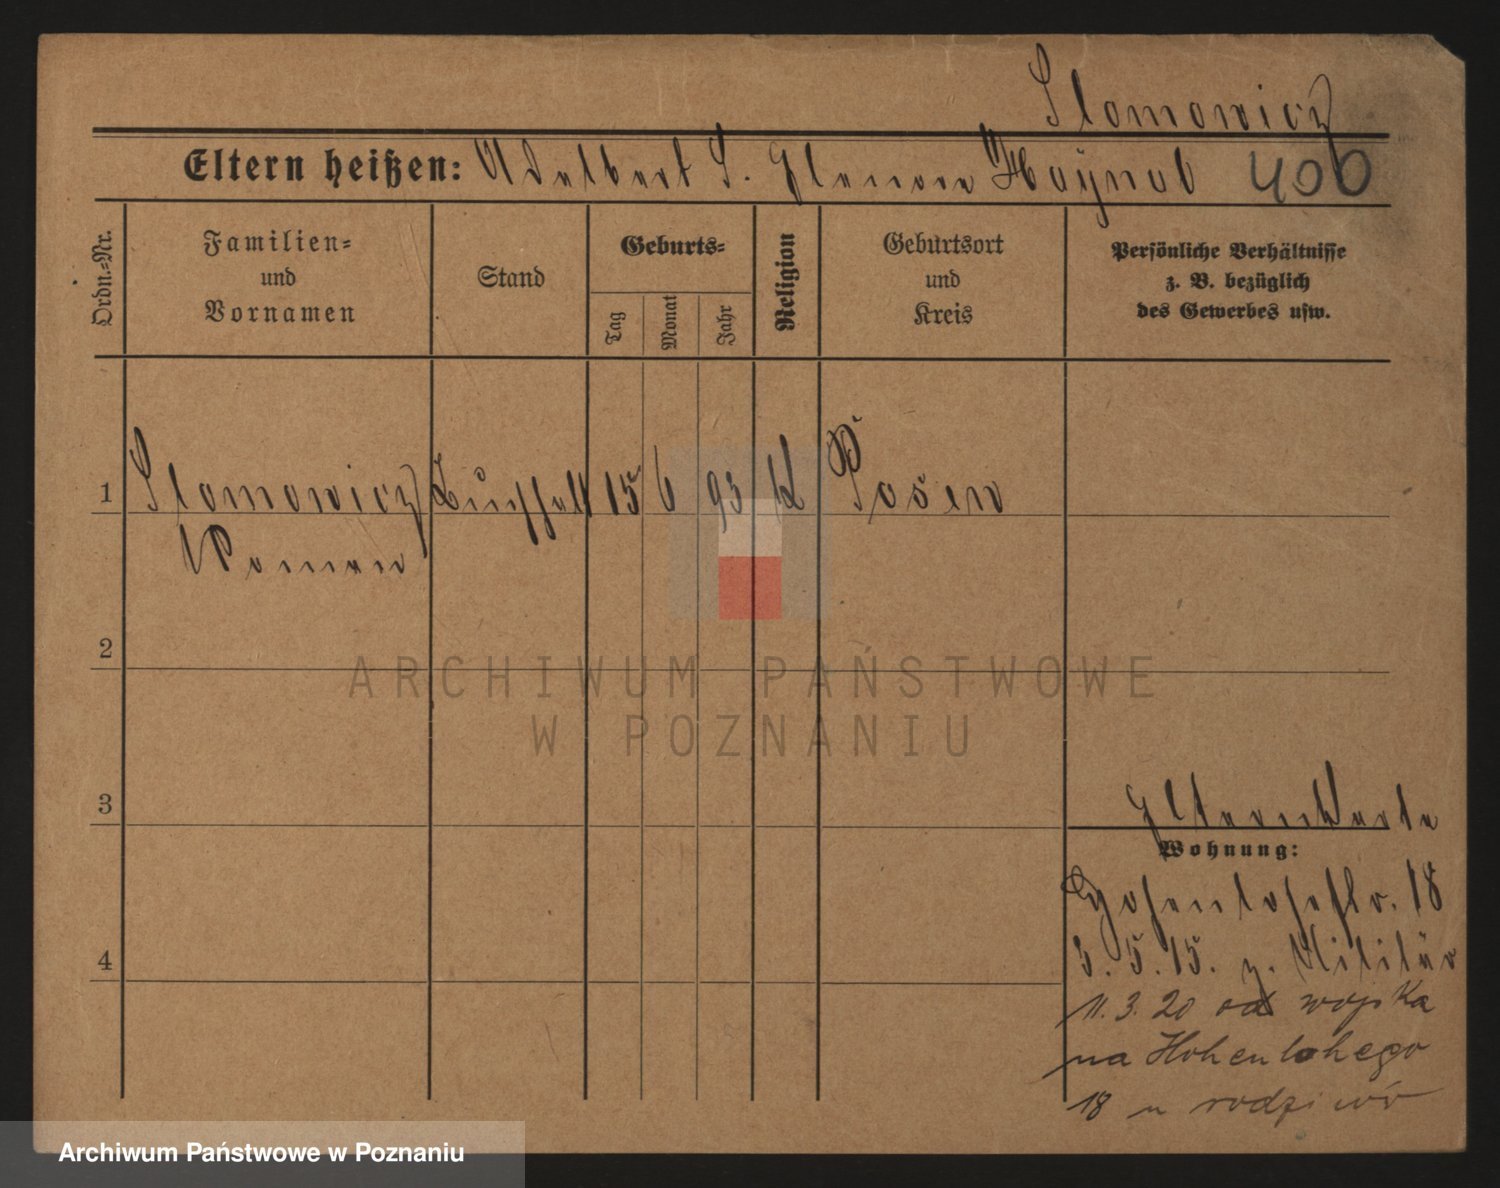 Slomowicz
Eltern heißen: Adelbert S. Elenore Haÿnol 400
Ordn.-Nr.
Familien-
und
Vornamen
Stand
Geburts-
Tag
Monat
Jahr
Religion
Geburtsort
und
Kreis
Persönliche Verhältnisse
z. B. bezüglich
des Gewerbes usw.
1 Slomowicz Buchhalt 15 6 93 K Posen
Roman
2
3
Elternkarte
Wohnung:
Hohenlohestr. 18
3. 5. 15. z. Militär
4
11. 3. 20 od wojska
na Hohenlohego
18 u rodziców
ARCHIWUM PAŃSTWOWE
W POZNANIU
Archiwum Państwowe w Poznaniu